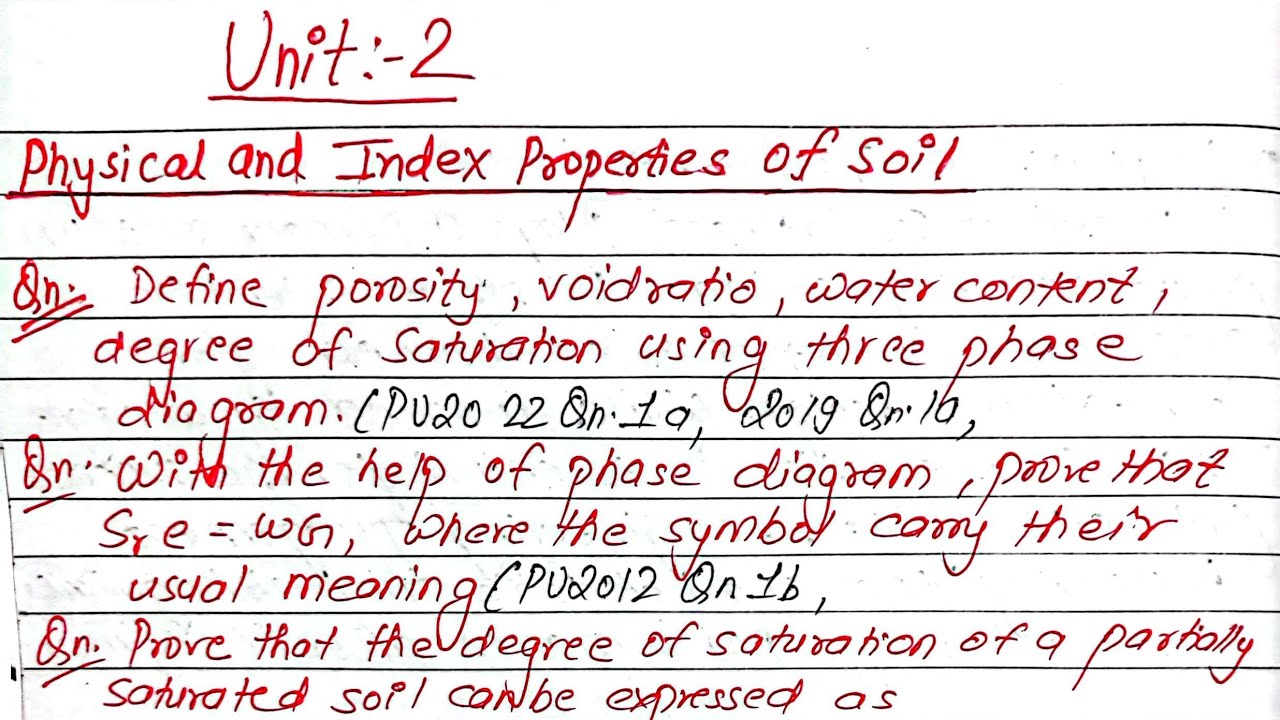 Unit:-2
Physical and Index Properties of Soil
Qn. Define porosity, void ratio, water content,
degree of saturation using three phase
diagram. (PU2022 Qn.1a, 2019 Qn.1a,
Qn. With the help of phase diagram, prove that
Sr e = wG, where the symbol carry their
usual meaning (PU2012 Qn 1b,
Qn. Prove that the degree of saturation of a partially
saturated soil can be expressed as